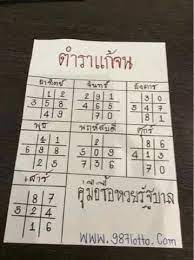 ตำราแก้จน
อาทิตย์ จันทร์ อังคาร
1 2 2 9 1 3 0
3 5 8 4 6 5
4 9 8 7
พุธ พฤหัสบดี ศุกร์
4 1 8 6
6 9 8 4 1 3
3 2 7 0
เสาร์
8 7
5 2 4
1 6
คู่มือซื้อหวยรัฐบาล
www.987lotto.com